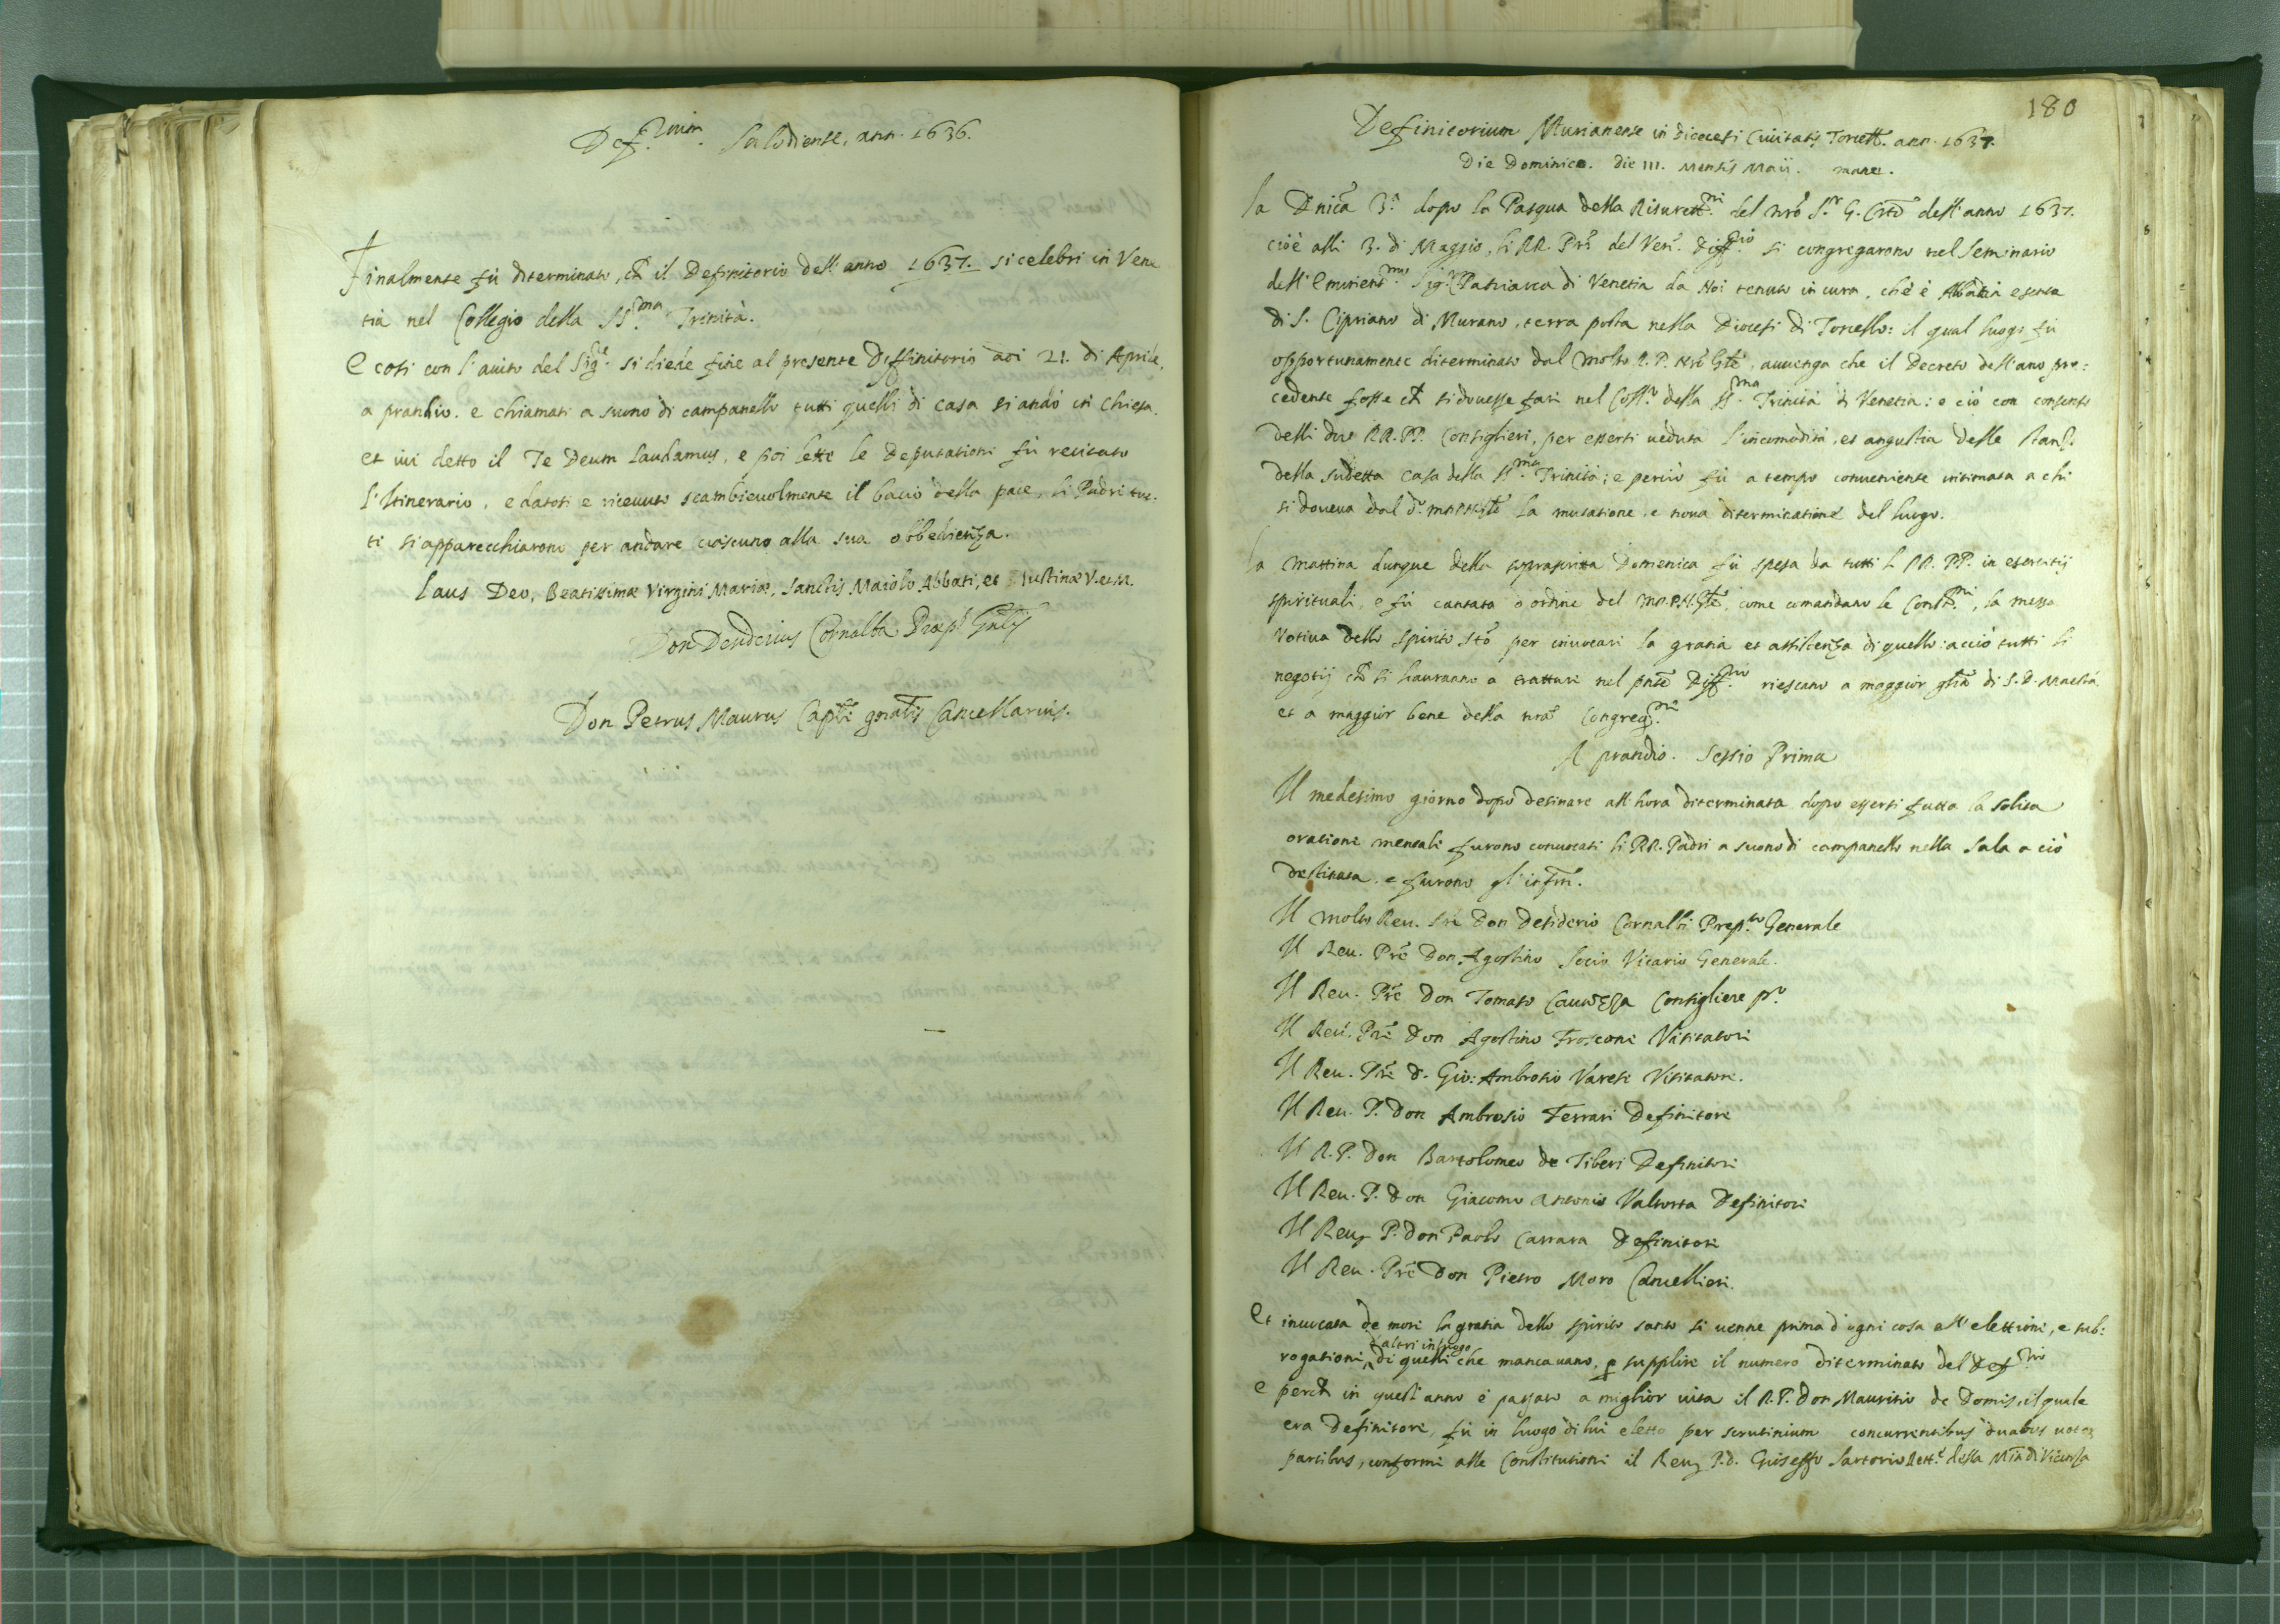 Def.nium. Salodiense, ann. 1636.
Finalmente fù diterminato, ch̃ il Definitorio dell'anno 1637. si celebri in Vene
tia nel Collegio della SS.ma Trinità.
E così con l'aiuto del Sig.re si diede fine al presente Diffinitorio aoi 21. di Aprile,
a prandio. e chiamati a suono di campanello tutti quelli di casa si andò in Chiesa.
et ivi detto il Te Deum laudamus, e poi lette le Deputationi fù recitato
l'Itinerario, e datosi e riceuuto scambieuolmente il bacio della pace, li Padri tut-
ti si apparecchiarono per andare ciascuno alla sua obbedienza.
Laus Deo, Beatissimæ Virgini Mariæ, Sanctis Maiolo Abbati, et Iustinæ V. et M.
Don Desiderius Cornalba Præp.s Gñlis
Don Petrus Maurus Cap.li gñalis Cancellarius.
180
Definitorium Murianense in dioecesi Ciuitatis Torcell. ann. 1637.
Die Dominico. die III. Mensis Maii. mane.
La Dnica 3.a dopo la Pasqua della Risurett.ni del nrõ S.r G. Crto dell'anno 1637.
cioè alli 3. di Maggio, li RR. Pri del Ven. Diff.rio si congregarono nel Seminario
dell'Eminent.mo Sig.r Patriarca di Venetia da Noi tenuto in cura, che è Abbatia esente
di S. Cipriano di Murano, terra posta nella Diocesi di Torcello: il qual luogo fù
opportunamente diterminato dal molto R. P. Nrõ Gñle, auuenga che il Decreto dell'ano pre:
cedente fosse ch̃ si douesse fari nel Coll.o della SS.ma Trinità di Venetia: e ciò con consenso
delli due RR. PP. Consiglieri, per essersi ueduta l'incomodità, et angustia delle stanz.
della sudetta Casa della SS.ma Trinità; e perciò fù a tempo conueniente intimata a chi
si doueua dal d.o M.R.P.N.Gñle la mutatione, e noua diterminatione del luogo.
La Mattina dunque della soprascritta Domenica fù spesa da tutti li RR. PP. in esercitij
spirituali, e fù cantata d'ordine del M.R.P.N.Gñle, come comandano le Const.ni, la messa
Votiua dello Spirito Stõ per inuocari la gratia et assistenza di quello: acciò tutti li
negotij ch̃ si hauranno a trattari nel pñte Diff.rio riescano a maggior gl̃ia di S. D. Maestà
et a maggior bene della nra Congreg.ne
A prandio. Sessio Prima
Il medesimo giorno dopò desinare all'hora diterminata dopo essersi fatta la solita
orationi mentali furono conuocati li RR. Padri a suono di campanello nella Sala a ciò
destinata. e furono gl'infri.
Il molto Reu. Pre Don Desiderio Cornalbi Prep.to Generale
Il Reu. Pre Don Agostino Socio Vicario Generale.
Il Reu. Pre Don Tomaso Cauezza Consigliere p.o
Il Reu. Pre Don Agostino Frosconi Visitatori
Il Reu. Pre D. Gio: Ambrosio Varesi Visitatore.
Il Reu. P. Don Ambrosio Ferrari Definitore
Il R. P. Don Bartolomeo de Tiberi Definitori
Il Reu. P. Don Giacomo Antonio Valtorta Definitori
Il Reu. P. Don Paolo Carrara Definitori
Il Reu. Pre Don Pietro Moro Cancellieri.
Et inuocata de mori la gratia dello Spirito santo si uenne prima d'ogni cosa all'elettioni, e sub:
d'altri in luogo
rogationi di quelli che mancauano, p supplire il numero diterminato del Def.rio
e perch̃ in quest'anno è passato a miglior uita il R. P. Don Mauritio de Domis, il quale
era Definitore, fù in luogo di lui eletto per scrutinium concurrentibus duabus uotor
partibus, conformi alle Constitutioni il Reu. P. D. Gioseffo Sartorio Rett.e della Mia di Vicenza